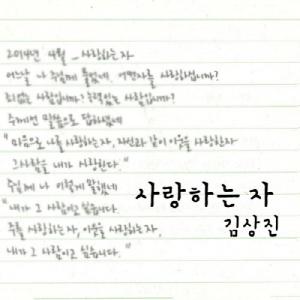 2014년 4월 _ 사랑하는 자
어느날 나 주님께 물었네. 어떤자를 사랑하십니까?
죄없는 사람입니까? 능력있는 사람입니까?
주께선 말씀으로 답하셨네
"마음으로 나를 사랑하는 자, 자신과 같이 이웃을 사랑한자
그사람을 내가 사랑한다."
주님께 나 이렇게 말했네
"내가 그 사람이고 싶습니다.
주를 사랑하는 자, 이웃을 사랑하는 자,
내가 그 사람이고 싶습니다."
사랑하는 자
김상진